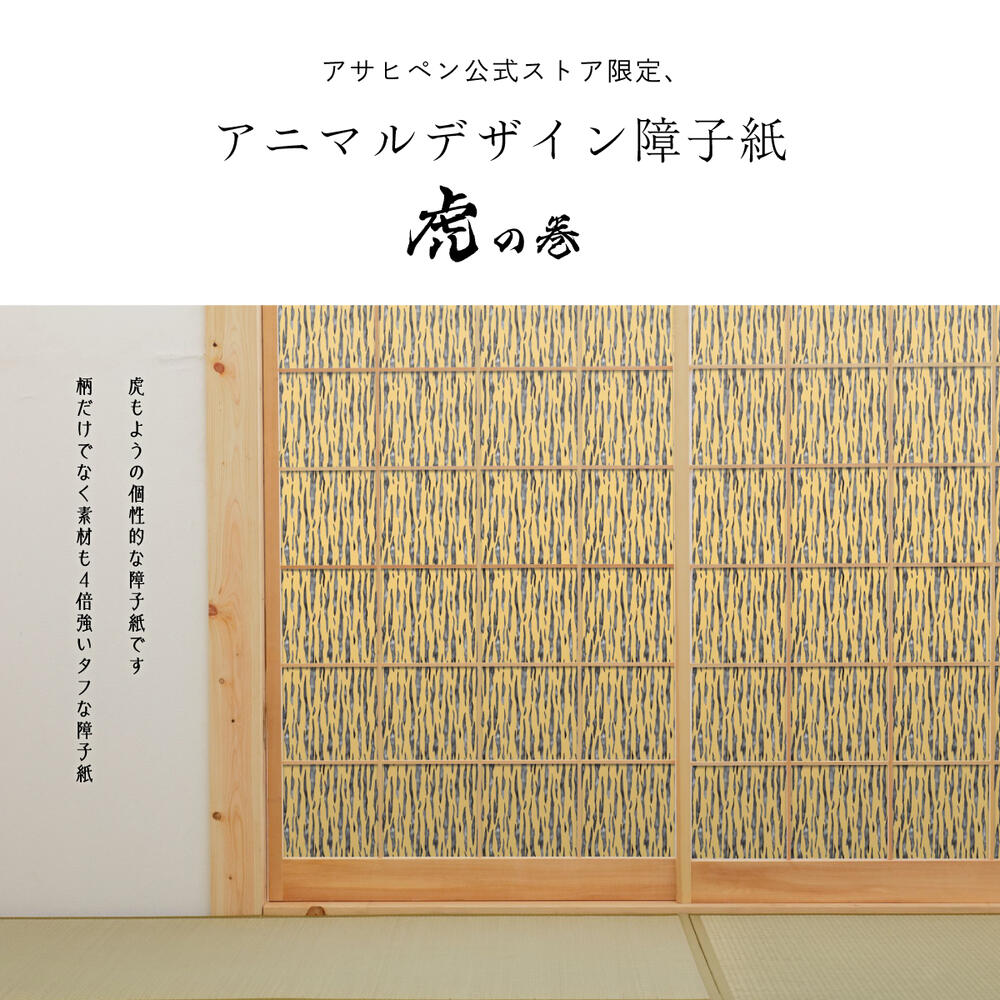 アサヒペン公式ストア限定、
アニマルデザイン障子紙
虎の巻
虎もようの個性的な障子紙です
柄だけでなく素材も4倍強いタフな障子紙